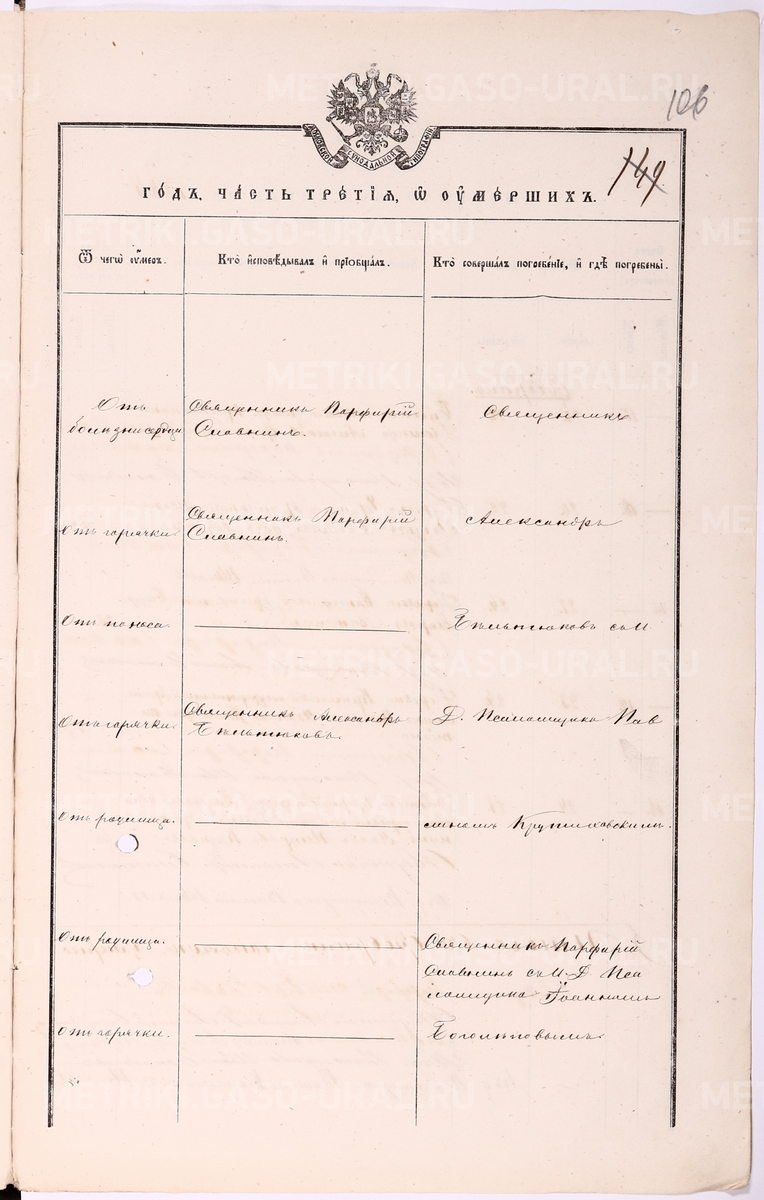 106
149
МОСКОВСКОЙ СѴНОДАЛЬНОЙ ТИПОГРАФІИ
ГО́ДЪ, ЧА́СТЬ ТРЕ́ТІЯ, Ѡ ОУ҆МЕ́РШИХЪ.
Ѿ чегѡ̀ ᲂу҆́меръ.
Кто̀ и҆сповѣ́дывалъ и҆ прїѡбща́лъ.
Кто̀ соверша́лъ погребе́нїе, и҆ гдѣ̀ погребены̀.
Отъ
болѣзни сердца
Священникъ Парфирій
Славнинъ.
Священникъ
Отъ горячки.
Священникъ Парфирій
Славнинъ.
Александръ
Отъ поноса.
Бѣльтюковъ съ И.
Отъ горячки.
Священникъ Александръ
Бѣльтюковъ.
Д. Псаломщика Пав
Отъ родимца.
линомъ Крутиховскимъ.
Отъ родимца.
Священникъ Парфирій
Славнинъ съ И. Д. Пса
ломщика Іоанномъ
Отъ горячки.
Боголѣповымъ.
METRIKI.GASO-URAL.RU